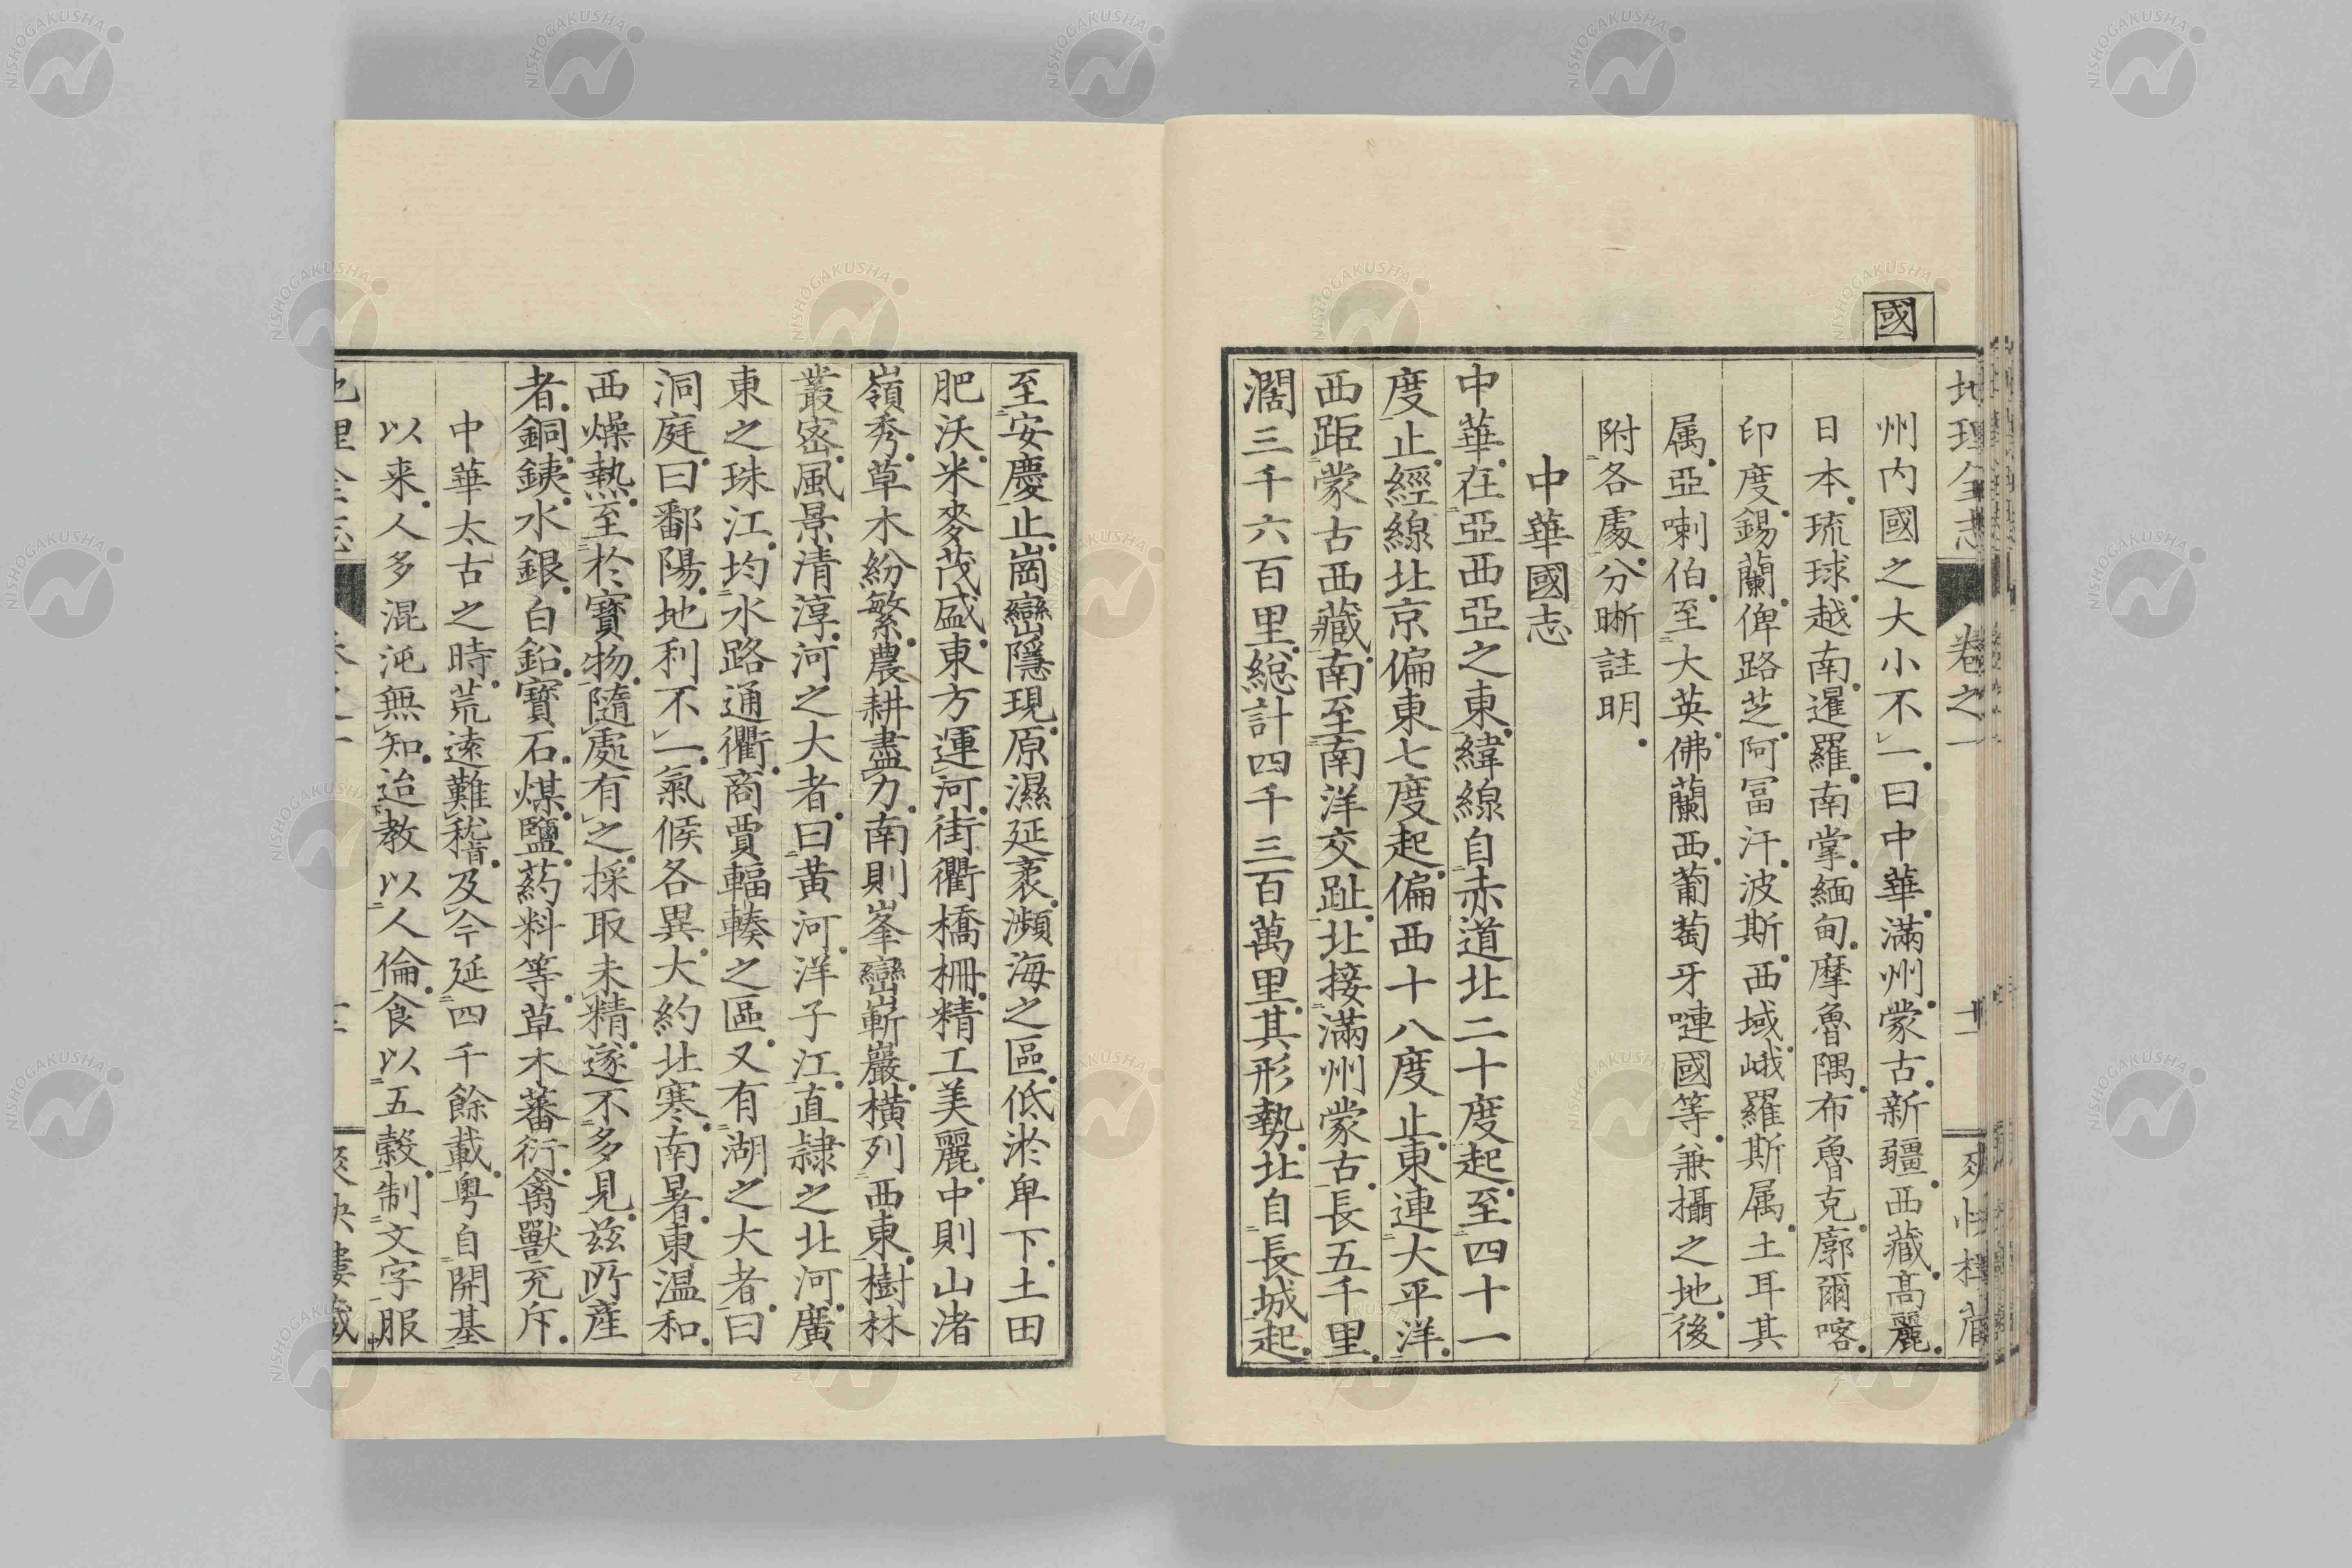 國
地理全志 卷之一
州內國之大小不一曰中華滿州蒙古新疆西藏高麗
日本琉球越南暹羅南掌緬甸摩魯隅布魯克廓爾喀
印度錫蘭俾路芝阿富汗波斯西域峨羅斯属土耳其
属亞喇伯至大英佛蘭西葡萄牙嗹國等兼攝之地後
附各處分晰註明
中華國志
中華在亞西亞之東緯線自赤道北二十度起至四十一
度止經線北京偏東七度起偏西十八度止東連大平洋
西距蒙古西藏南至南洋交趾北接滿州蒙古長五千里
濶三千六百里總計四千三百萬里其形勢北自長城起
至安慶止崗巒隱現原濕延袤瀕海之區低淤卑下土田
肥沃米麥茂盛東方運河街衢橋柵精工美麗中則山渚
嶺秀草木紛繁農耕盡力南則峯巒嶄巖橫列西東樹林
叢密風景清淳河之大者曰黃河洋子江直隷之北河廣
東之珠江均水路通衢商賈輻輳之區又有湖之大者曰
洞庭曰鄱陽地利不一氣候各異大約北寒南暑東温和
西燥熱至於寶物隨處有之採取未精遂不多見茲所產
者銅鐵水銀白鉛寶石煤鹽葯料等草木蕃衍禽獸充斥
中華太古之時荒遠難稽及今延四千餘載粤自開基
以来人多混沌無知迨教以人倫食以五穀制文字服